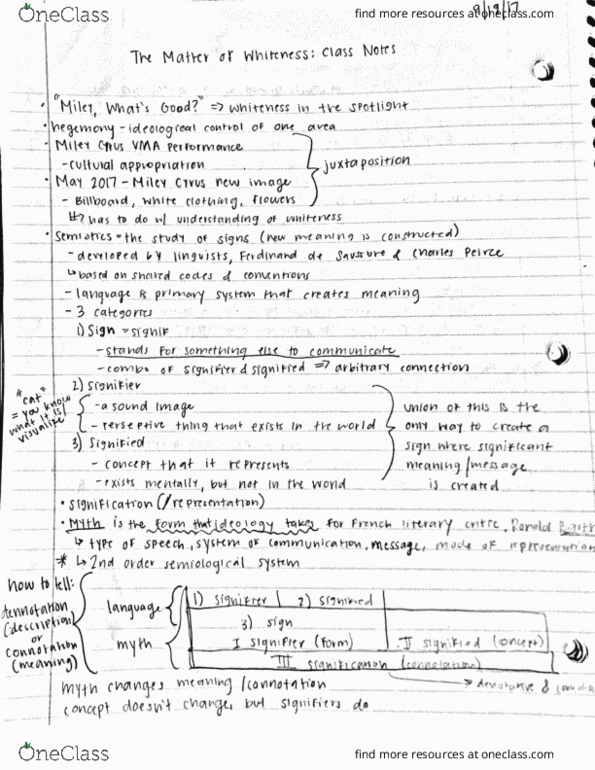 OneClass
find more resources at oneclass.com
9/19/17
The Matter of Whiteness: Class Notes
• "Miley, What's Good?" => whiteness in the spotlight
• hegemony - ideological control of one area
• Miley Cyrus VMA performance
- cultural appropriation
juxtaposition
• May 2017 - Miley Cyrus new image
- Billboard, white clothing, flowers
↳ has to do w/ understanding of whiteness
• Semiotics = the study of signs (new meaning is constructed)
- developed by linguists, Ferdinand de Saussure & Charles Peirce
↳ based on shared codes & conventions
- language is primary system that creates meaning
- 3 categories
1) Sign = signif
- stands for something else to communicate
- combo of signifier & signified => arbitrary connection
"cat"
= you know
what it is /
visualize
2) Signifier
- a sound image
- perseptive thing that exists in the world
3) Signified
- concept that it represents
- exists mentally, but not in the world
union of this is the
only way to create a
sign where significant
meaning /message
is created
• signification (/representation)
• Myth is the form that ideology takes for French literary critic, Ronald
↳ type of speech, system of communication, message, mode of representation
* ↳ 2nd order semiological system
how to tell:
dennotation
(description)
or
connotation
(meaning)
language
myth
1) signifier 2) signified
3) sign
I signifier (form) II signified (concept)
III signification (connotation)
→ denotative &
myth changes meaning /connotation
concept doesn't change, but signifiers do
OneClass
find more resources at oneclass.com